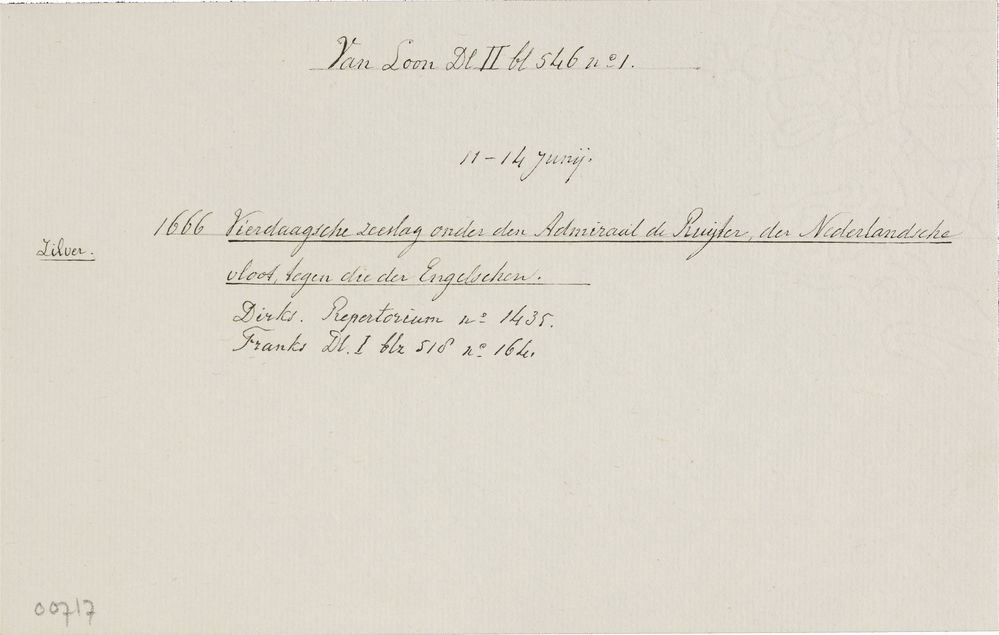 Van Loon Dl II bl 546 nº 1.
11 – 14 Junij.
1666 Vierdaagsche zeeslag onder den Admiraal de Ruijter, der Nederlandsche
Zilver.
vloot, tegen die der Engelschen.
Dirks. Repertorium nº 1435.
Franks Dl. I blz 518 nº 164.
00717